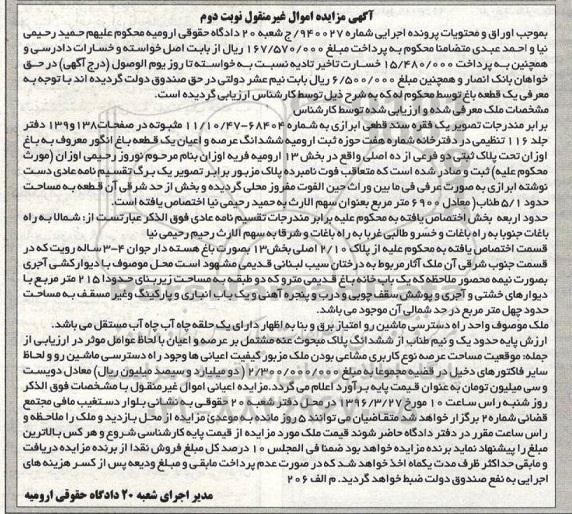 آگهی مزایده اموال غیرمنقول نوبت دوم
بموجب اوراق و محتویات پرونده اجرایی شماره ۹۴۰۰۲۷/ج شعبه ۲۰ دادگاه حقوقی ارومیه محکوم علیهم حمید رحیمی
نیا و احمد عبدی متضامنا محکوم به پرداخت مبلغ ۱۶۷/۵۷۰/۰۰۰ ریال از بابت اصل خواسته و خسارات دادرسی و
همچنین به پرداخت ۱۵/۴۸۰/۰۰۰ خسارت تاخیر تادیه نسبت به خواسته تا روز یوم الوصول (درج آگهی) در حق
خواهان بانک انصار و همچنین مبلغ ۶/۵۰۰/۰۰۰ ریال بابت نیم عشر دولتی در حق صندوق دولت گردیده اند با توجه به
معرفی یک قطعه باغ توسط محکوم له که به شرح ذیل توسط کارشناس ارزیابی گردیده است.
مشخصات ملک معرفی شده و ارزیابی شده توسط کارشناس
برابر مندرجات تصویر یک فقره سند قطعی ابرازی به شماره ۶۸۴۰۴-۱۱/۱۰/۴۷ مثبوته در صفحات ۱۳۸و۱۳۹ دفتر
جلد ۱۱۶ تنظیمی در دفترخانه شماره هفت حوزه ثبت ارومیه ششدانگ عرصه و اعیان یک قطعه باغ انگور معروف به باغ
اوزان تحت پلاک ثبتی دو فرعی از ده اصلی واقع در بخش ۱۳ ارومیه قریه اوزان بنام مرحوم نوروز رحیمی اوزان (مورث
محکوم علیه) ثبت و صادر شده است که متعاقب فوت نامبرده پلاک مزبور برابر تصویر یک برگ تقسیم نامه عادی دست
نوشته ابرازی به صورت عرفی فی ما بین وراث حین الفوت مفروز محلی گردیده و بخش از حد شرقی آن قطعه به مساحت
حدود ۵/۱ طناب( معادل ۶۹۰۰ متر مربع بعنوان سهم الارث به حمید رحیمی نیا اختصاص یافته است.
حدود اربعه بخش اختصاص یافته به محکوم علیه برابر مندرجات تقسیم نامه عادی فوق الذکر عبارتست از: شمالا به راه
باغات جنوبا به راه باغات و خسرو طالبی غربا به راه باغات و شرقا به سهم الارث رحیم رحیمی نیا
قسمت اختصاص یافته به محکوم علیه از پلاک ۲/۱۰ اصلی بخش۱۳ بصورت باغ هسته دار جوان ۴-۳ ساله رویت که در
قسمت جنوب شرقی آن ملک آثار مربوط به درختان سیب لبنانی قدیمی مشهود است محل موصوف با دیوارکشی آجری
بصورت نیمه محصور ملاحظه که یک باب خانه باغ قدیمی متروکه دو طبقه به مساحت زیربنای حدودا ۲۱۵ متر مربع با
دیوارهای خشتی و آجری و پوشش سقف چوبی و درب و پنجره آهنی و یک باب انباری و پارکینگ وغیر مسقف به مساحت
حدود چهل متر مربع در حد شمالی آن موجود می باشد.
ملک موصوف واجد راه دسترسی ماشین رو امتیاز برق و بنا به اظهار دارای یک حلقه چاه آب چاه آب مستقل می باشد.
ارزش پایه حدود یک و نیم طناب از ششدانگ پلاک مبحوث عنه مشتمل بر عرصه و اعیان با لحاظ عوامل موثر در ارزیابی از
جمله: موقعیت مساحت عرصه نوع کاربری مشاعی بودن ملک مزبور کیفیت اعیانی ها وجود راه دسترسی ماشین رو و لحاظ
سایر فاکتورهای دخیل در قضیه مجموعا به مبلغ ۲/۳۰۰/۰۰۰/۰۰۰ (دو میلیارد و سیصد میلیون ریال) معادل دویست
و سی میلیون تومان به عنوان قیمت پایه برآورد اعلام می گردد. مزایده اعیانی اموال غیرمنقول با مشخصات فوق الذکر
روز شنبه راس ساعت ۱۰ مورخ ۱۳۹۶/۳/۲۷ در محل دفتر شعبه ۲۰ حقوقی به نشانی بلوار دستغیب مافی مجتمع
قضائی شماره۲ برگزار خواهد شد متقاضیان می توانند ۵ روز مانده به موعدی مزایده از محل بازدید و ملک را ملاحظه و
راس ساعت مقرر در دفتر دادگاه حاضر شوند قیمت ملک مورد مزایده از قیمت پایه کارشناسی شروع و هر کس بالاترین
مبلغ را پیشنهاد نماید برنده مزایده خواهد بود ضمنا فی المجلس ۱۰ درصد کل مبلغ فروش نقدا از برنده مزایده دریافت
و مابقی حداکثر ظرف مدت یکماه اخذ خواهد شد که در صورت عدم پرداخت مابقی و مبلغ ودیعه پس از کسر هزینه های
اجرایی به نفع صندوق دولت ضبط خواهد گردید. م الف ۲۰۶
مدیر اجرای شعبه ۲۰ دادگاه حقوقی ارومیه